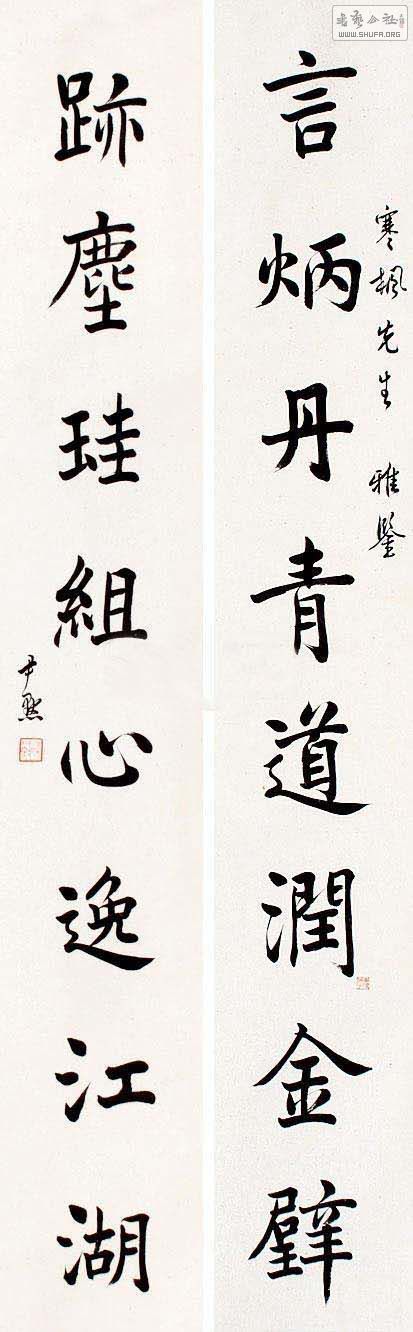 WWW.SHUFA.ORG
寒楓先生 雅鑒
言炳丹青道潤金璧
跡塵珪組心逸江湖
尹默